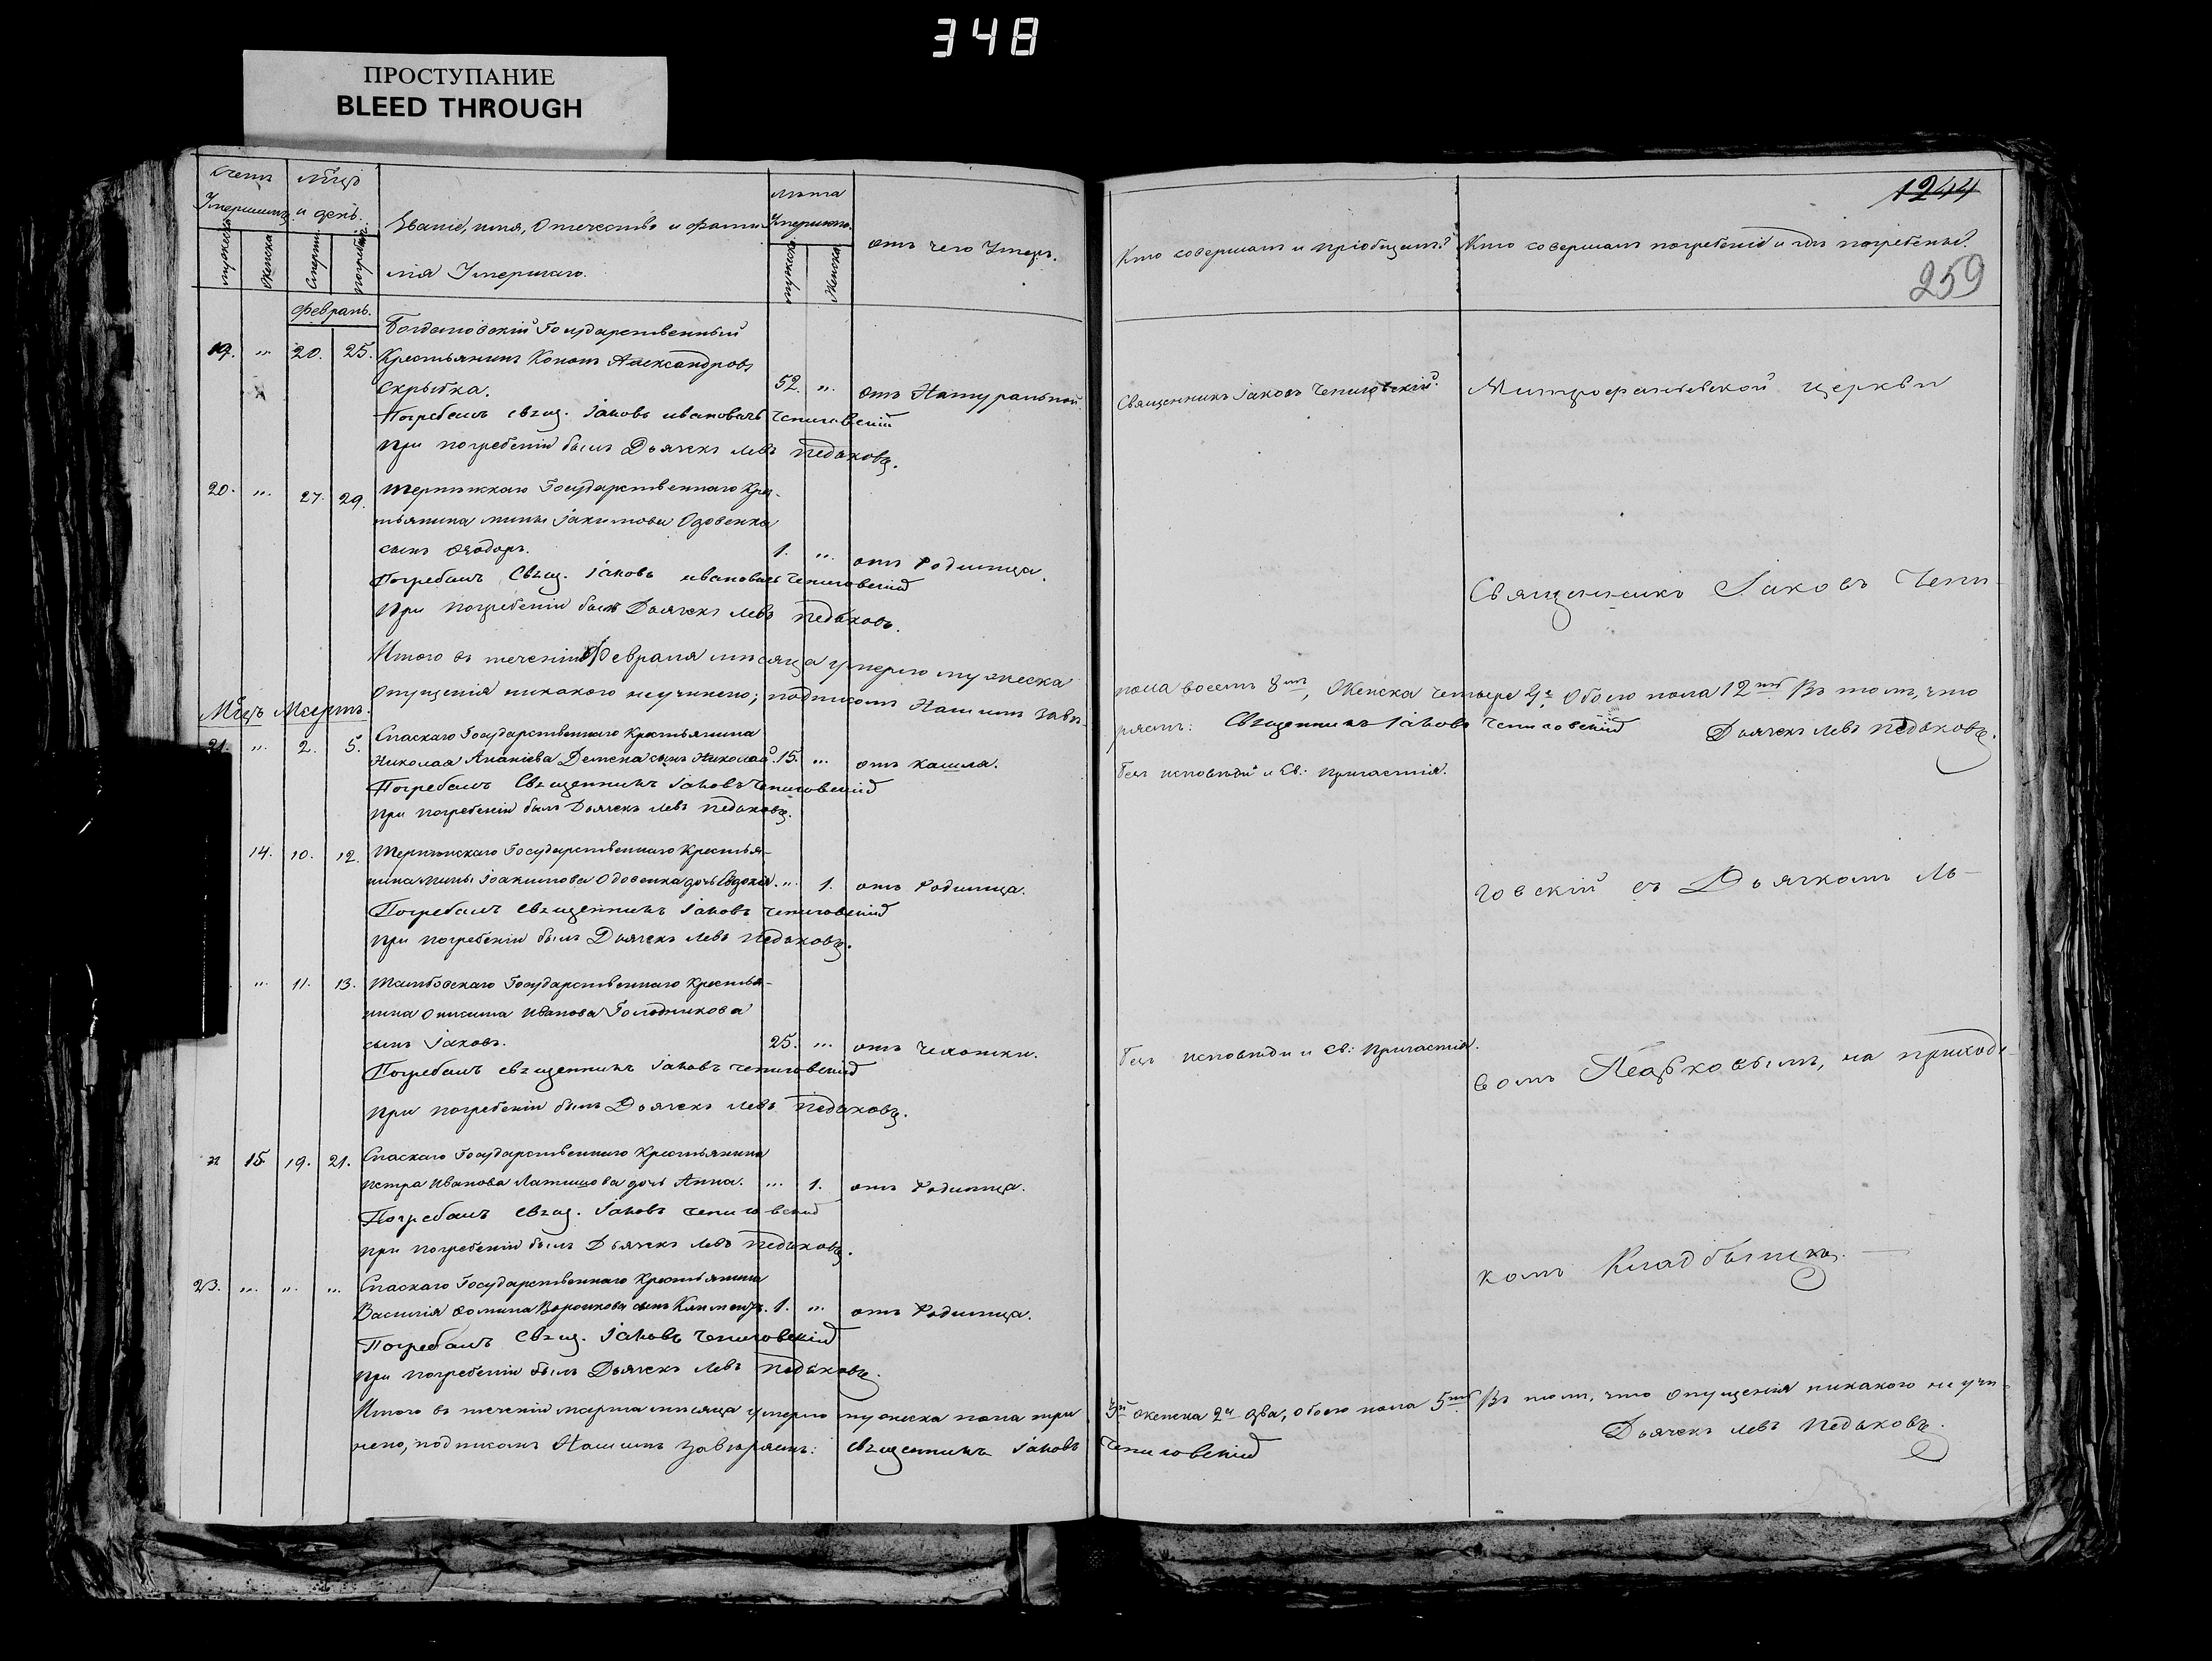 348
ПРОСТУПАНИЕ
BLEED THROUGH
1244
259
Счетъ Умершихъ
мужеска
женска
Мѣсяцъ и день
Смерти
погребен.
Званіе, имя, Отечество и фами-
лія Умершаго.
лѣта Умершаго
мужска
женска
отъ чего Умеръ.
Кто совершалъ и пріобщалъ?
Кто совершалъ погребеніе и гдѣ погребены?
Февраль.
Государственный
19. „ 20. 25. Крестьянинъ Кононъ Александровъ
Скрыпка. 52. „ отъ Натуральной. Священникъ Іаковъ Чепиговскій. Митрофаніевской церкви
Погребалъ свящ. Іаковъ Ивановичъ Чепиговскій
При погребеніи былъ Дьячекъ Левъ Педьковъ.
20. „ 27. 29. Государственнаго Крес-
тьянина Мины Іакимова Одовенка
сынъ Ѳеодоръ. 1. „ отъ Родимца.
Погребалъ Свящ. Іаковъ Ивановичъ Чепиговскій Священникъ Іаковъ Чепи-
При погребеніи былъ Дьячекъ Левъ Педьковъ.
Итого въ теченіи Февраля мѣсяца умерло мужеска пола восемь 8мъ, Женска четыре 4е Обоего пола 12ть Въ томъ, что
опущенія никакого неучинено; подписомъ Нашимъ завѣряемъ: Священникъ Іаковъ Чепиговскій Дьячекъ Левъ Педьковъ.
Мѣсяцъ Мартъ.
21. „ 2. 5. Спаскаго Государственнаго Крестьянина
Николая Ананіева сынъ Николай. 15. „ отъ кашля. Безъ исповѣди и Св: причастія.
Погребалъ Священникъ Іаковъ Чепиговскій
При погребеніи былъ Дьячекъ Левъ Педьковъ.
14. 10. 12. Государственнаго Крестья-
нина Мины Іоакимова Одовенка дочь Евдокія. „ 1. отъ Родимца. говскій съ Дьячкомъ Ль-
Погребалъ священникъ Іаковъ Чепиговскій
При погребеніи былъ Дьячекъ Левъ Педьковъ.
„ 11. 13. Тамбовскаго Государственнаго Крестья-
нина Онисима Иванова Голодникова
сынъ Іаковъ. 25. „ отъ Чахотки. Безъ исповѣди и Св: Причастія.
Погребалъ священникъ Іаковъ Чепиговскій вомъ Педьковымъ, на приходс-
При погребеніи былъ Дьячекъ Левъ Педьковъ.
„ 15 19. 21. Спаскаго Государственнаго Крестьянина
Петра Иванова Латишова дочь Анна. „ 1. отъ Родимца.
Погребалъ Свящ. Іаковъ Чепиговскій
При погребеніи былъ Дьячекъ Левъ Педьковъ. комъ Кладбыщѣ.
23. „ „ „ Спаскаго Государственнаго Крестьянина
Василія Ѳомина сынъ Климентъ. 1. „ отъ Родимца.
Погребалъ Свящ. Іаковъ Чепиговскій
При погребеніи былъ Дьячекъ Левъ Педьковъ.
Итого въ теченіи марта мѣсяца умерло мужеска пола три 3и женска 2е два, обоего пола 5ть Въ томъ, что опущенія никакого неучи-
нено, подписомъ Нашимъ завѣряемъ: священникъ Іаковъ Чепиговскій Дьячекъ Левъ Педьковъ.